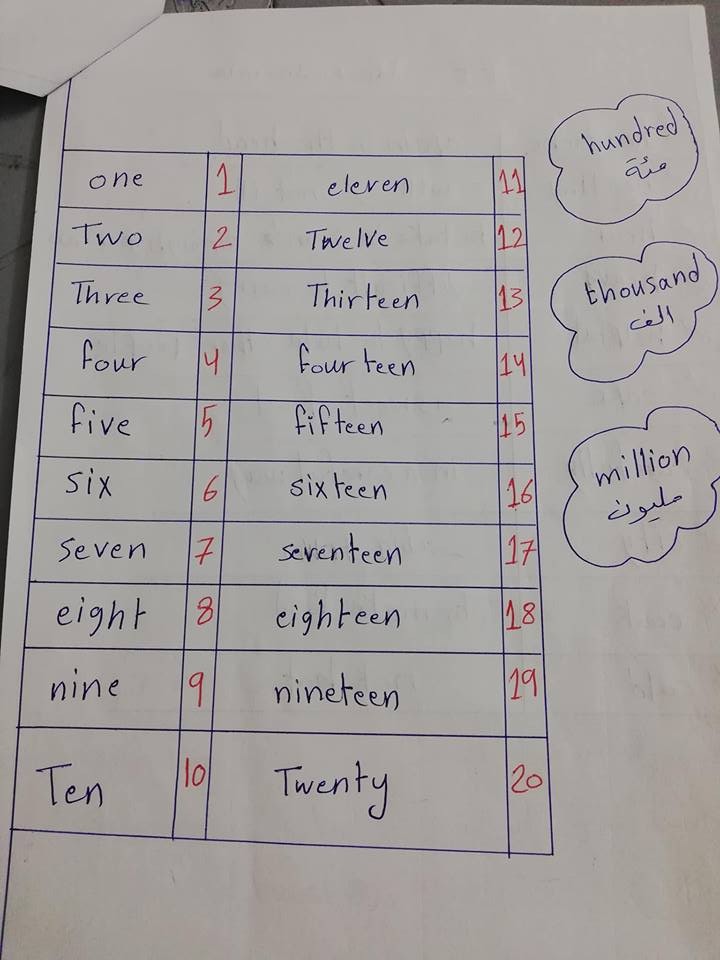 one 1 eleven 11
Two 2 Twelve 12
Three 3 Thirteen 13
four 4 fourteen 14
five 5 fifteen 15
six 6 sixteen 16
seven 7 seventeen 17
eight 8 eighteen 18
nine 9 nineteen 19
Ten 10 Twenty 20
hundred
مئة
thousand
الف
million
مليون